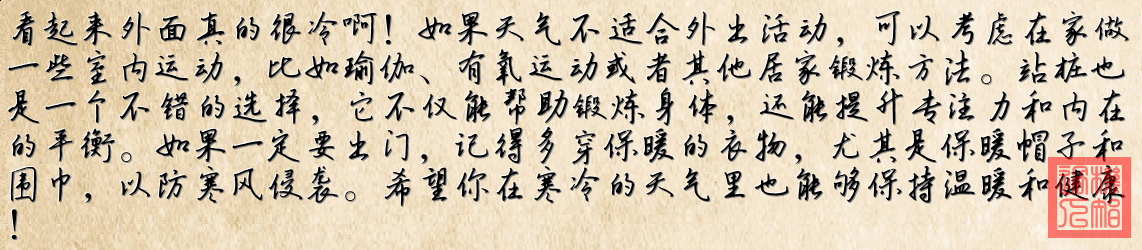 看起来外面真的很冷啊！如果天气不适合外出活动，可以考虑在家做
一些室内运动，比如瑜伽、有氧运动或者其他居家锻炼方法。站桩也
是一个不错的选择，它不仅能帮助锻炼身体，还能提升专注力和内在
的平衡。如果一定要出门，记得多穿保暖的衣物，尤其是保暖帽子和
围巾，以防寒风侵袭。希望你在寒冷的天气里也能够保持温暖和健康
！